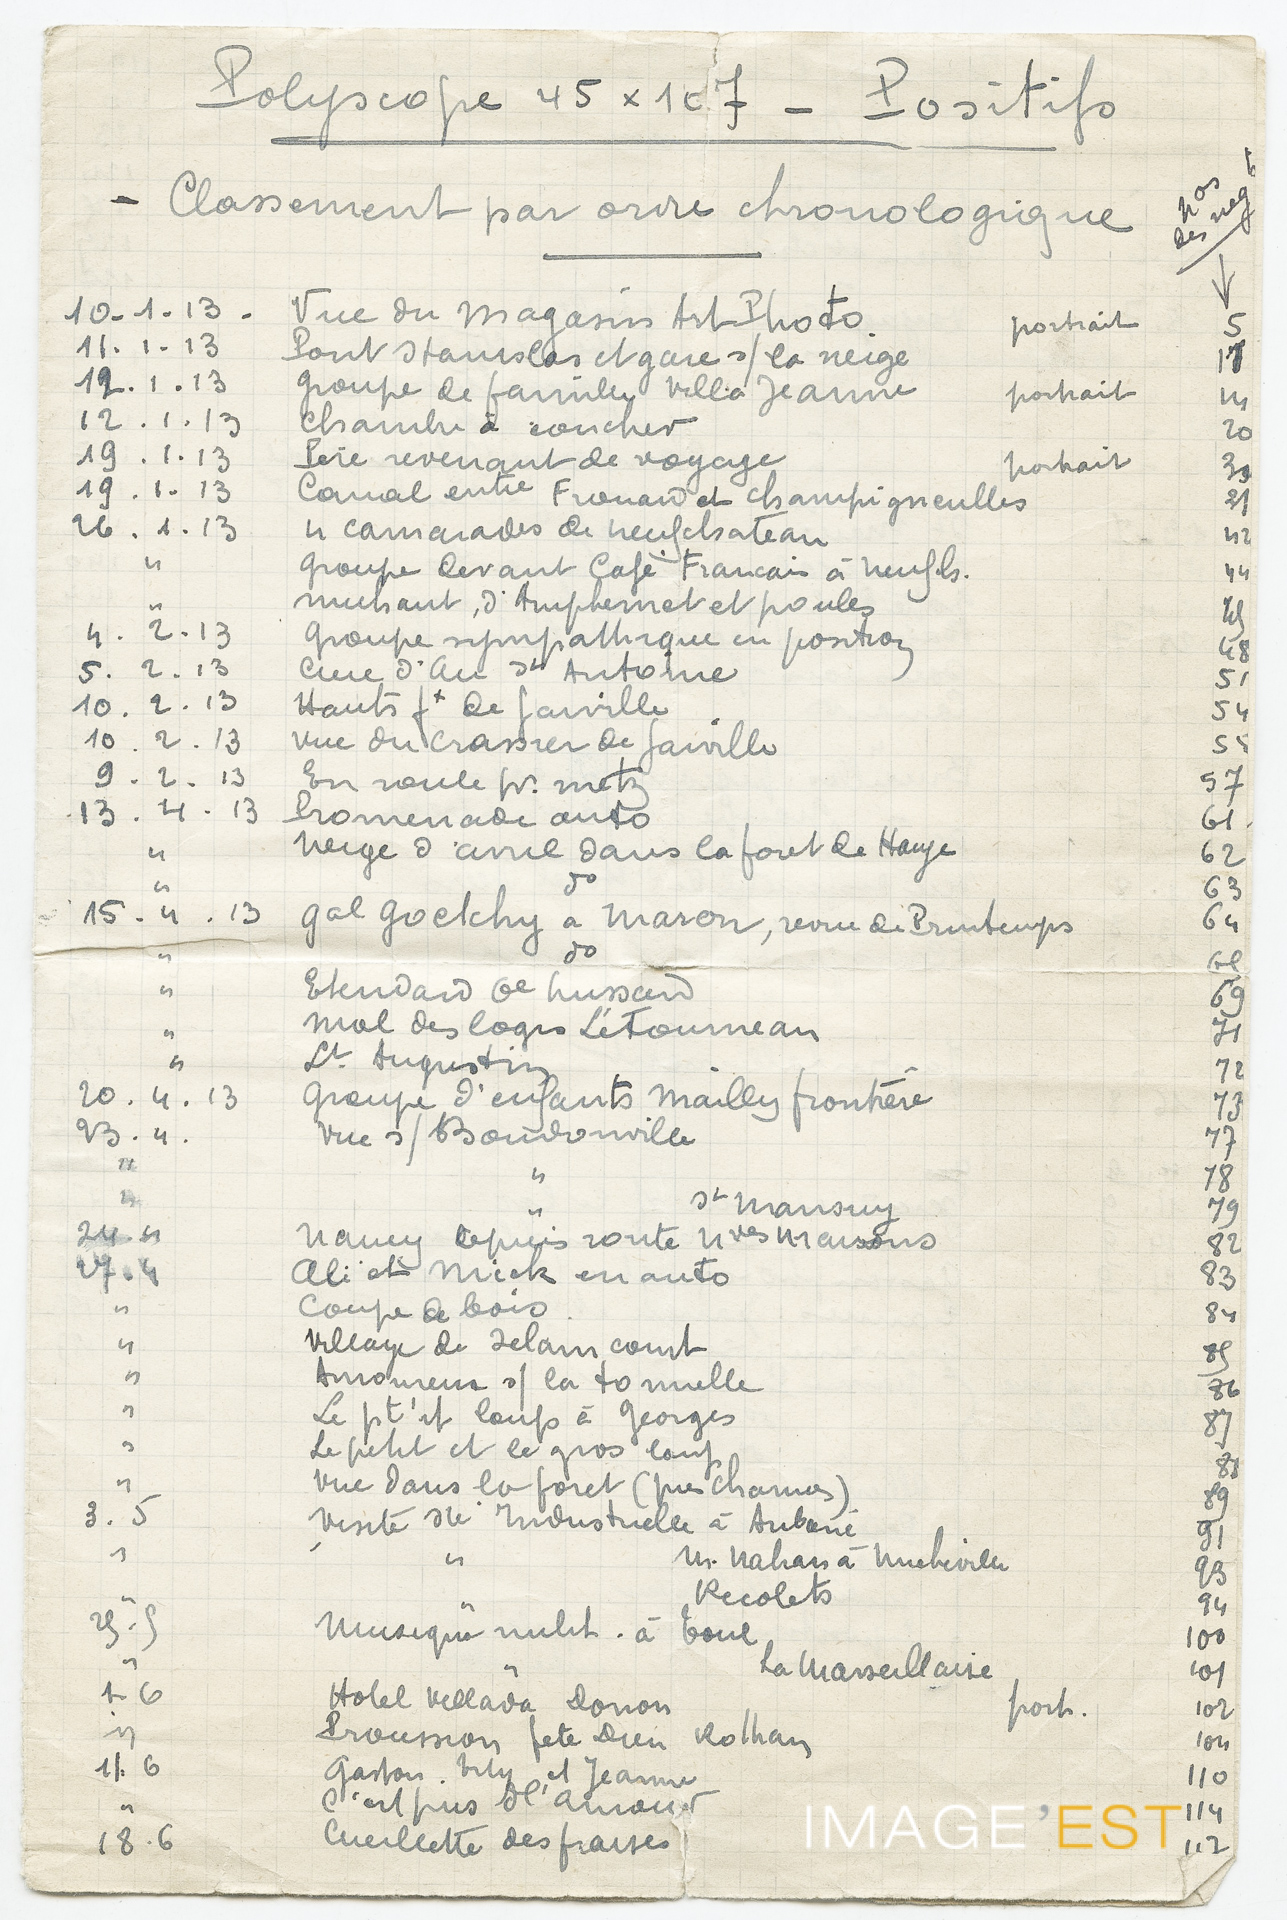 Polyscope 45 x 107 - Positifs
- Classement par ordre chronologique
nos des neg
10-1-13 - Vue du Magasin Art Photo. portrait 5
11.1.13 Pont Stanislas et gare s/ la neige 11
12.1.13 groupe de famille villa Jeanne portrait 14
12.1.13 Chambre à coucher 20
19.1.13 Père revenant de voyage portrait 30
19.1.13 Canal entre Frouard et Champigneulles 31
26.1.13 4 camarades de Neufchateau 42
" groupe devant Café Francais à Neufch. 44
" d'Amphernet et poules 45
4.2.13 groupe sympathique en position 48
5.2.13 d'Art St Antoine 51
10.2.13 Hauts fx de Jarville 54
10.2.13 vue du Crassier de Jarville 55
9.2.13 En route pr. Metz 57
13.4.13 Promenade auto 61
" Neige d'avril dans la foret de Haye 62
" do 63
15.4.13 gal Goetchy à Maron, revue de Printemps 64
" do 68
" Etendard 8e hussard 69
" Mal des logis Létourneau 71
" Lt. Augustin 72
20.4.13 Groupe d'enfants Mailly frontière 73
23.4. Vue s/ Boudonville 77
" " 78
" " St Mansuy 79
24 " Nancy depuis route Nves Maisons 82
27.4 Ali et Mick en auto 83
" Coupe de bois 84
" Village de Xelaincourt 85
" Amoureux s/ la tonnelle 86
" Le pt'it loup à Georges 87
" Le petit et le gros loup 88
" Vue dans la foret (près Charmes) 89
3.5 Visite Sté Industrielle à Auboué 91
" " M. à Micheville 93
" " Recolets 94
25.5 Musique milit. à Toul 100
" " La Marseillaise 101
1-6 Hotel Velléda Donon port. 102
" Procession fete Dieu Rothau 104
11.6 Gaston. et Jeanne 110
" C'est pus d'l'amour 114
18.6 Cueillette des fraises 112
IMAGE'EST